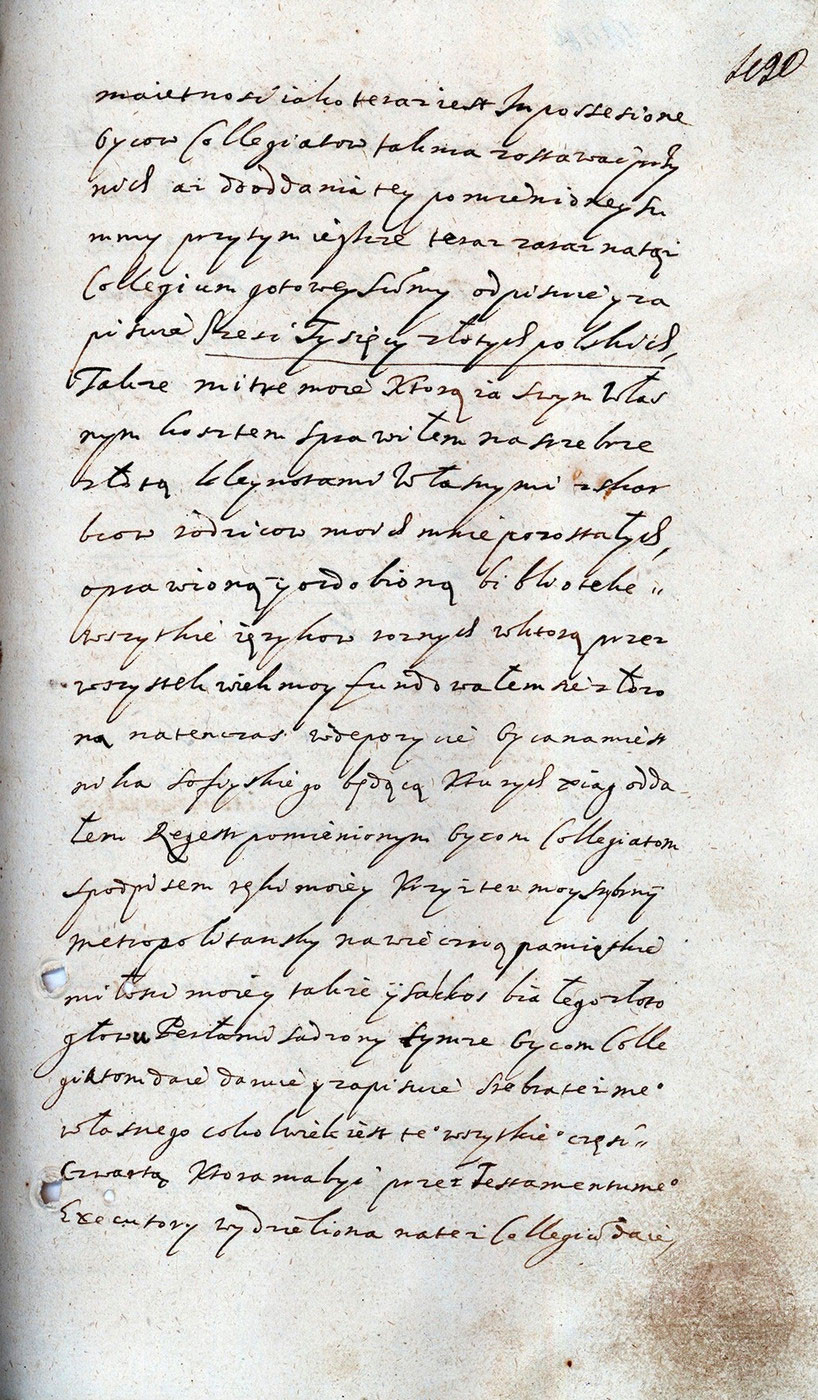 maietnosć iako teraz iest In possesione
Oycow Collegiatow tak ma zostawać przy
nich aż do oddania tey pomienioney su
mmy przytym ieszcze teraz zaraz na tęż
Collegium gotowey Sūmy odpisuię y za
pisuie Szesć Tysięcy złotych polskich,
Takze mitrę moię Ktorą ia swym Włas
nym kosztem sprawiłem na srebrze
złotą kleynotami Własnymi z skar
bcow rodzicow moich mnie pozostałych,
oprawioną y ozdobioną bibliotekę
wszytkie ięzykow roznych w ktorą przez
wszystek wiek moy fundowałem się złozo
ną na tenczas w depozycie Oyca namiest
nika Sofiyskiego będącą Kturych xiąg odda
łem Regestr pomienionym Oycom Collegiatom
s podpisem ręki moiey Krzyż tez moy srebrny
metropolitansky na wieczną pamiątkę
miłosci moiey takze y sakkos białego złoto
głowu Perłami sadzony tymze Oycom Colle
giatom daię daruię y zapisuię Srebra tez me°
własnego cokolwiek iest te° wszytkie° częsć
Czwartą Ktora ma byc przez Testamentu me°
Executory wydzieliona na tez Collegiū daię,